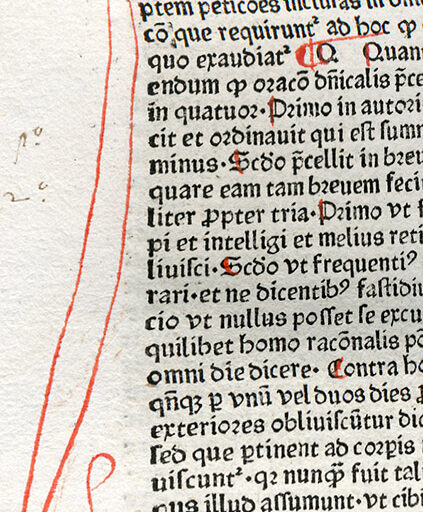 ptem peticões
cõ que requirunt᷑ ad hoc ꝙ
quo exaudiat᷑ ¶ Q Quan
endum ꝙ oracõ dñicalis p̃ce
in quatuor·Primo in autori
cit et ordinauit qui est sum
pº minus·Scdo p̃cellit in breu
2º quare eam tam breuem feci
liter ꝓpter tria·Primo vt f
pi et intelligi et melius reti
liuisci·Scdo vt frequentiꝰ
rari·et ne dicentibꝰ fastidiu
cio vt nullus posset se excu
quilibet homo racõnalis po
omni die dicere· Contra ho
qñqꝫ ꝑ vnũ vel duos dies
exteriores obliuiscũtur dic
sed que ꝑtinent ad corꝑis
uiscunt᷑·qꝛ nunqᷓꝫ fuit tal
illud assumunt·vt cibi